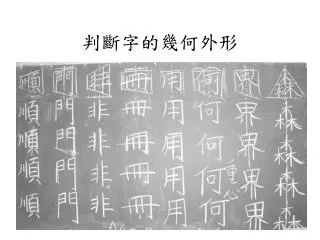 判斷字的幾何外形
順 門 非 冊 用 何 界 森
順 門 非 冊 用 何 界 森
順 門 非 冊 用 何 界 森
順 門 非 冊 用 何 界 森
順 門 非 冊 用 何 界 森